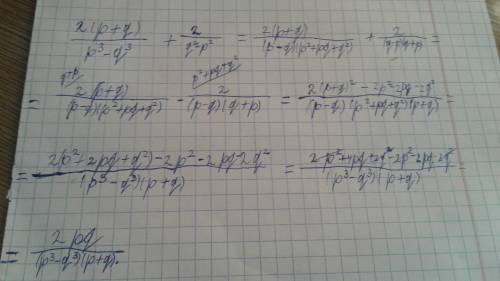 2(p+q)/(p³-q³) + 2/(q²-p²) = 2(p+q)/((p-q)(p²+pq+q²)) + 2/((q-p)(q+p)) =
= 2(p+q)/((p-q)(p²+pq+q²)) (q+p - 2/((p-q)(q+p)) (p²+pq+q² = (2(p+q)²-2p²-2pq-2q²)/((p-q)(p²+pq+q²)(p+q)) =
= (2(p²+2pq+q²)-2p²-2pq-2q²)/((p³-q³)(p+q)) = (2p²+4pq+2q²-2p²-2pq-2q²)/((p³-q³)(p+q)) =
= 2pq/((p³-q³)(p+q)).